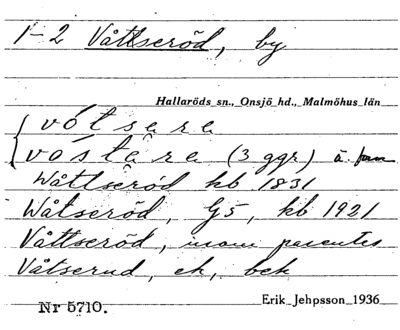 1-2 Våttseröd, by
Hallaröds sn., Onsjö hd., Malmöhus län
vótsera
vóstâra (3 ggr) ä.
Wåttseröd kb 1831
Wåtseröd, G5, kb 1921
Våttseröd, inom parentes
Våtserud, ek, bek
Nr 5710. Erik Jehpsson 1936